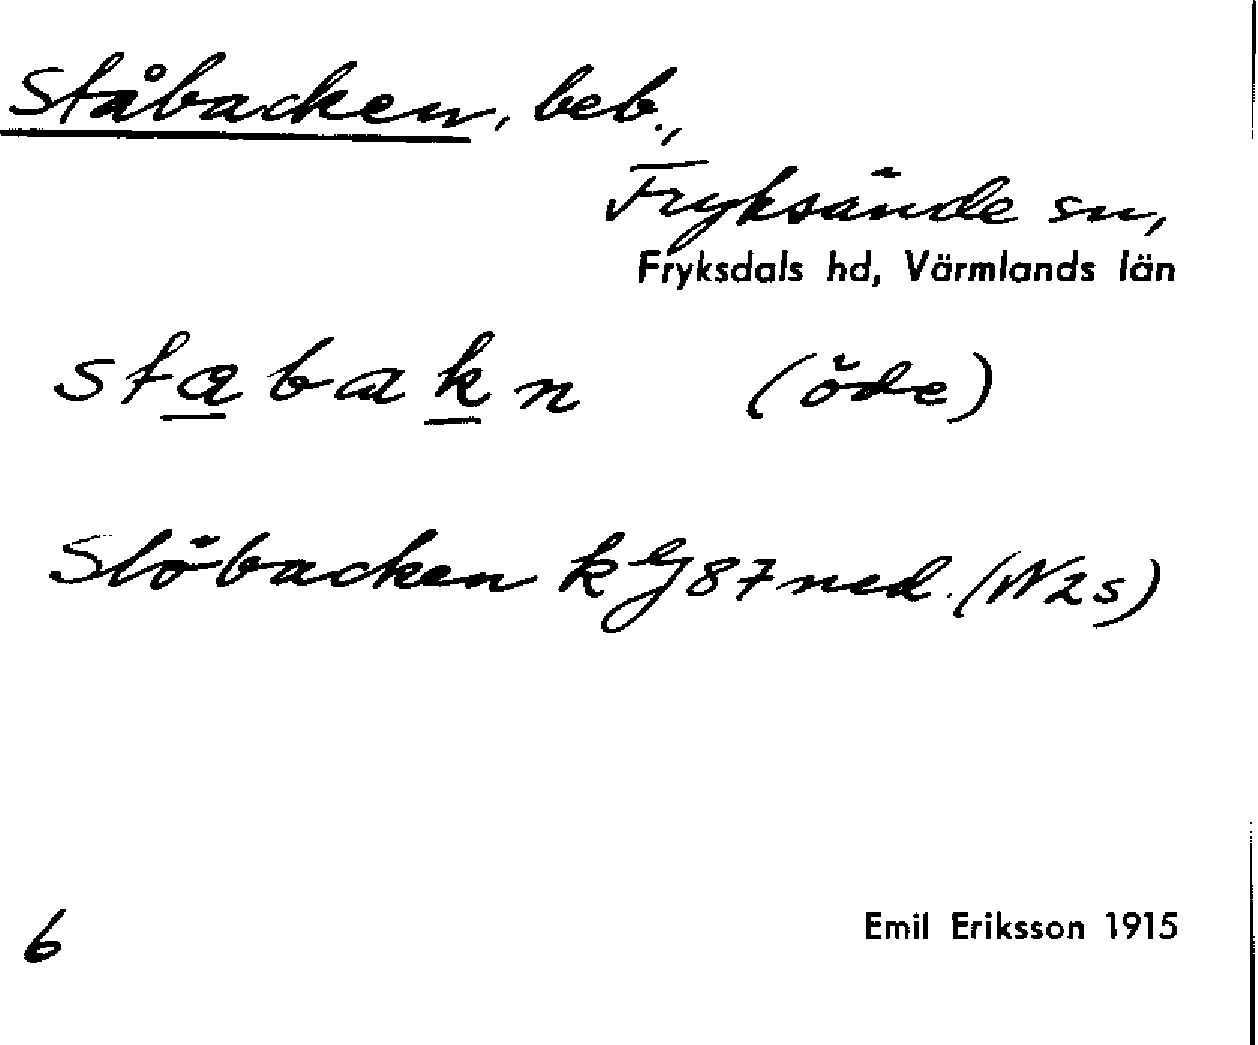 Ståbacken, beb.,
Fryksände sn,
Fryksdals hd, Värmlands län
stabakn (öde)
Slöbacken 87 ned. (W2s)
6
Emil Eriksson 1915